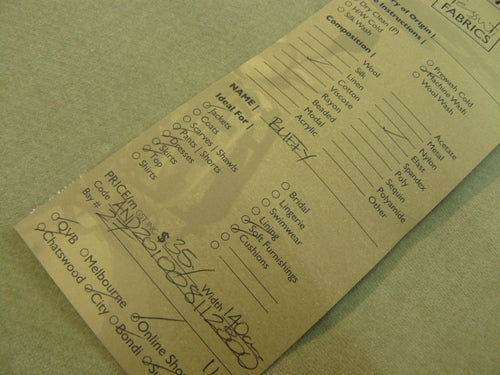 FABRICS
ry of Origin |
g Instructions |
Dry Clean (P)
H/W Cold
Silk Wash
Prewash Cold
Machine Wash
Wool Wash
Composition |
Wool
Silk
Linen
Cotton
Viscose
Rayon
Beaded
Modal
Acrylic
Acetate
Metal
Nylon
Elast
Spandex
Poly
Sequin
Polyamide
Other
NAME | BUFFY
Ideal For |
Jackets
Coats
Scarves | Shawls
Pants | Shorts
Dresses
Skirts
Top
Shirts
Bridal
Lingerie
Swimwear
Lining
Soft Furnishings
Cushions
PRICE/m $ 35/
Width 140cm
Code
Buy #
QVB
Melbourne
Online Sho
Chatswood
City
Bondi